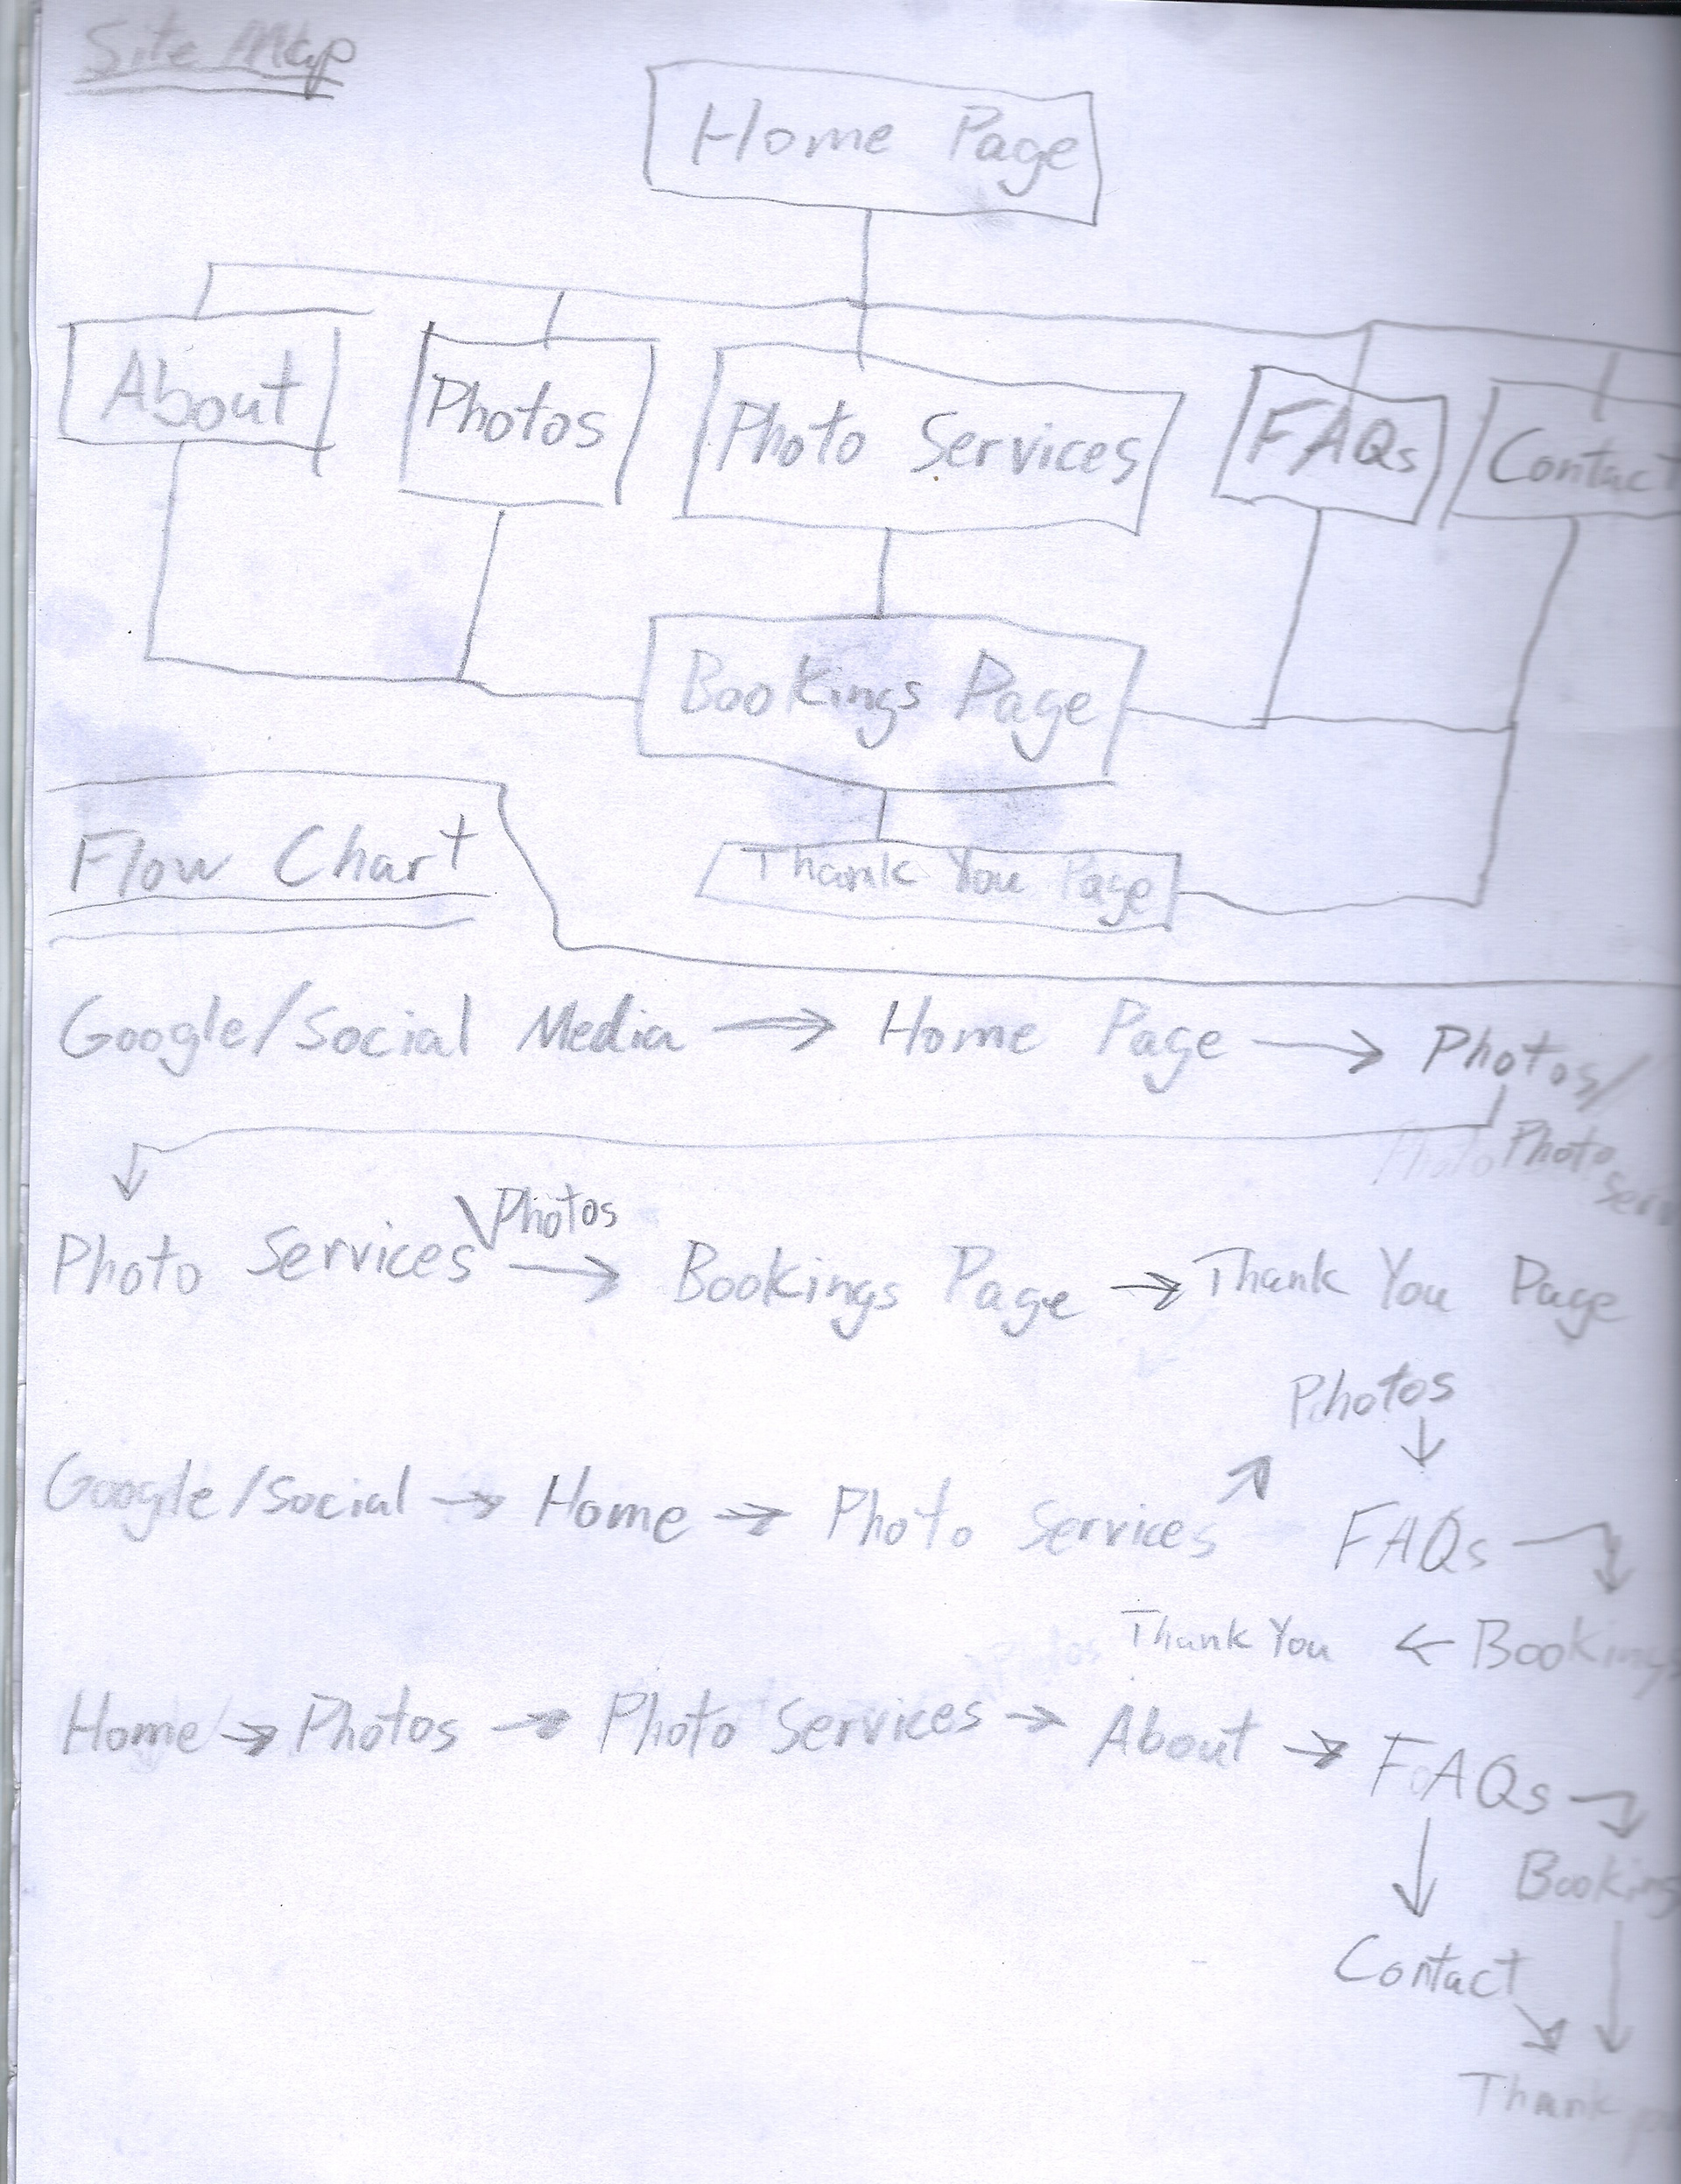 Site Map
Home Page
About Photos Photo Services FAQs Contact
Bookings Page
Thank You Page
Flow Chart
Google/Social Media → Home Page → Photos/
Photo Photo
Serv
Photos
Photo Services → Bookings Page → Thank You Page
Photos
Google/Social → Home → Photo Services
FAQs
Thank You ← Bookings
Photos
Home → Photos → Photo Services → About → FAQs
Booking
Contact
Thank